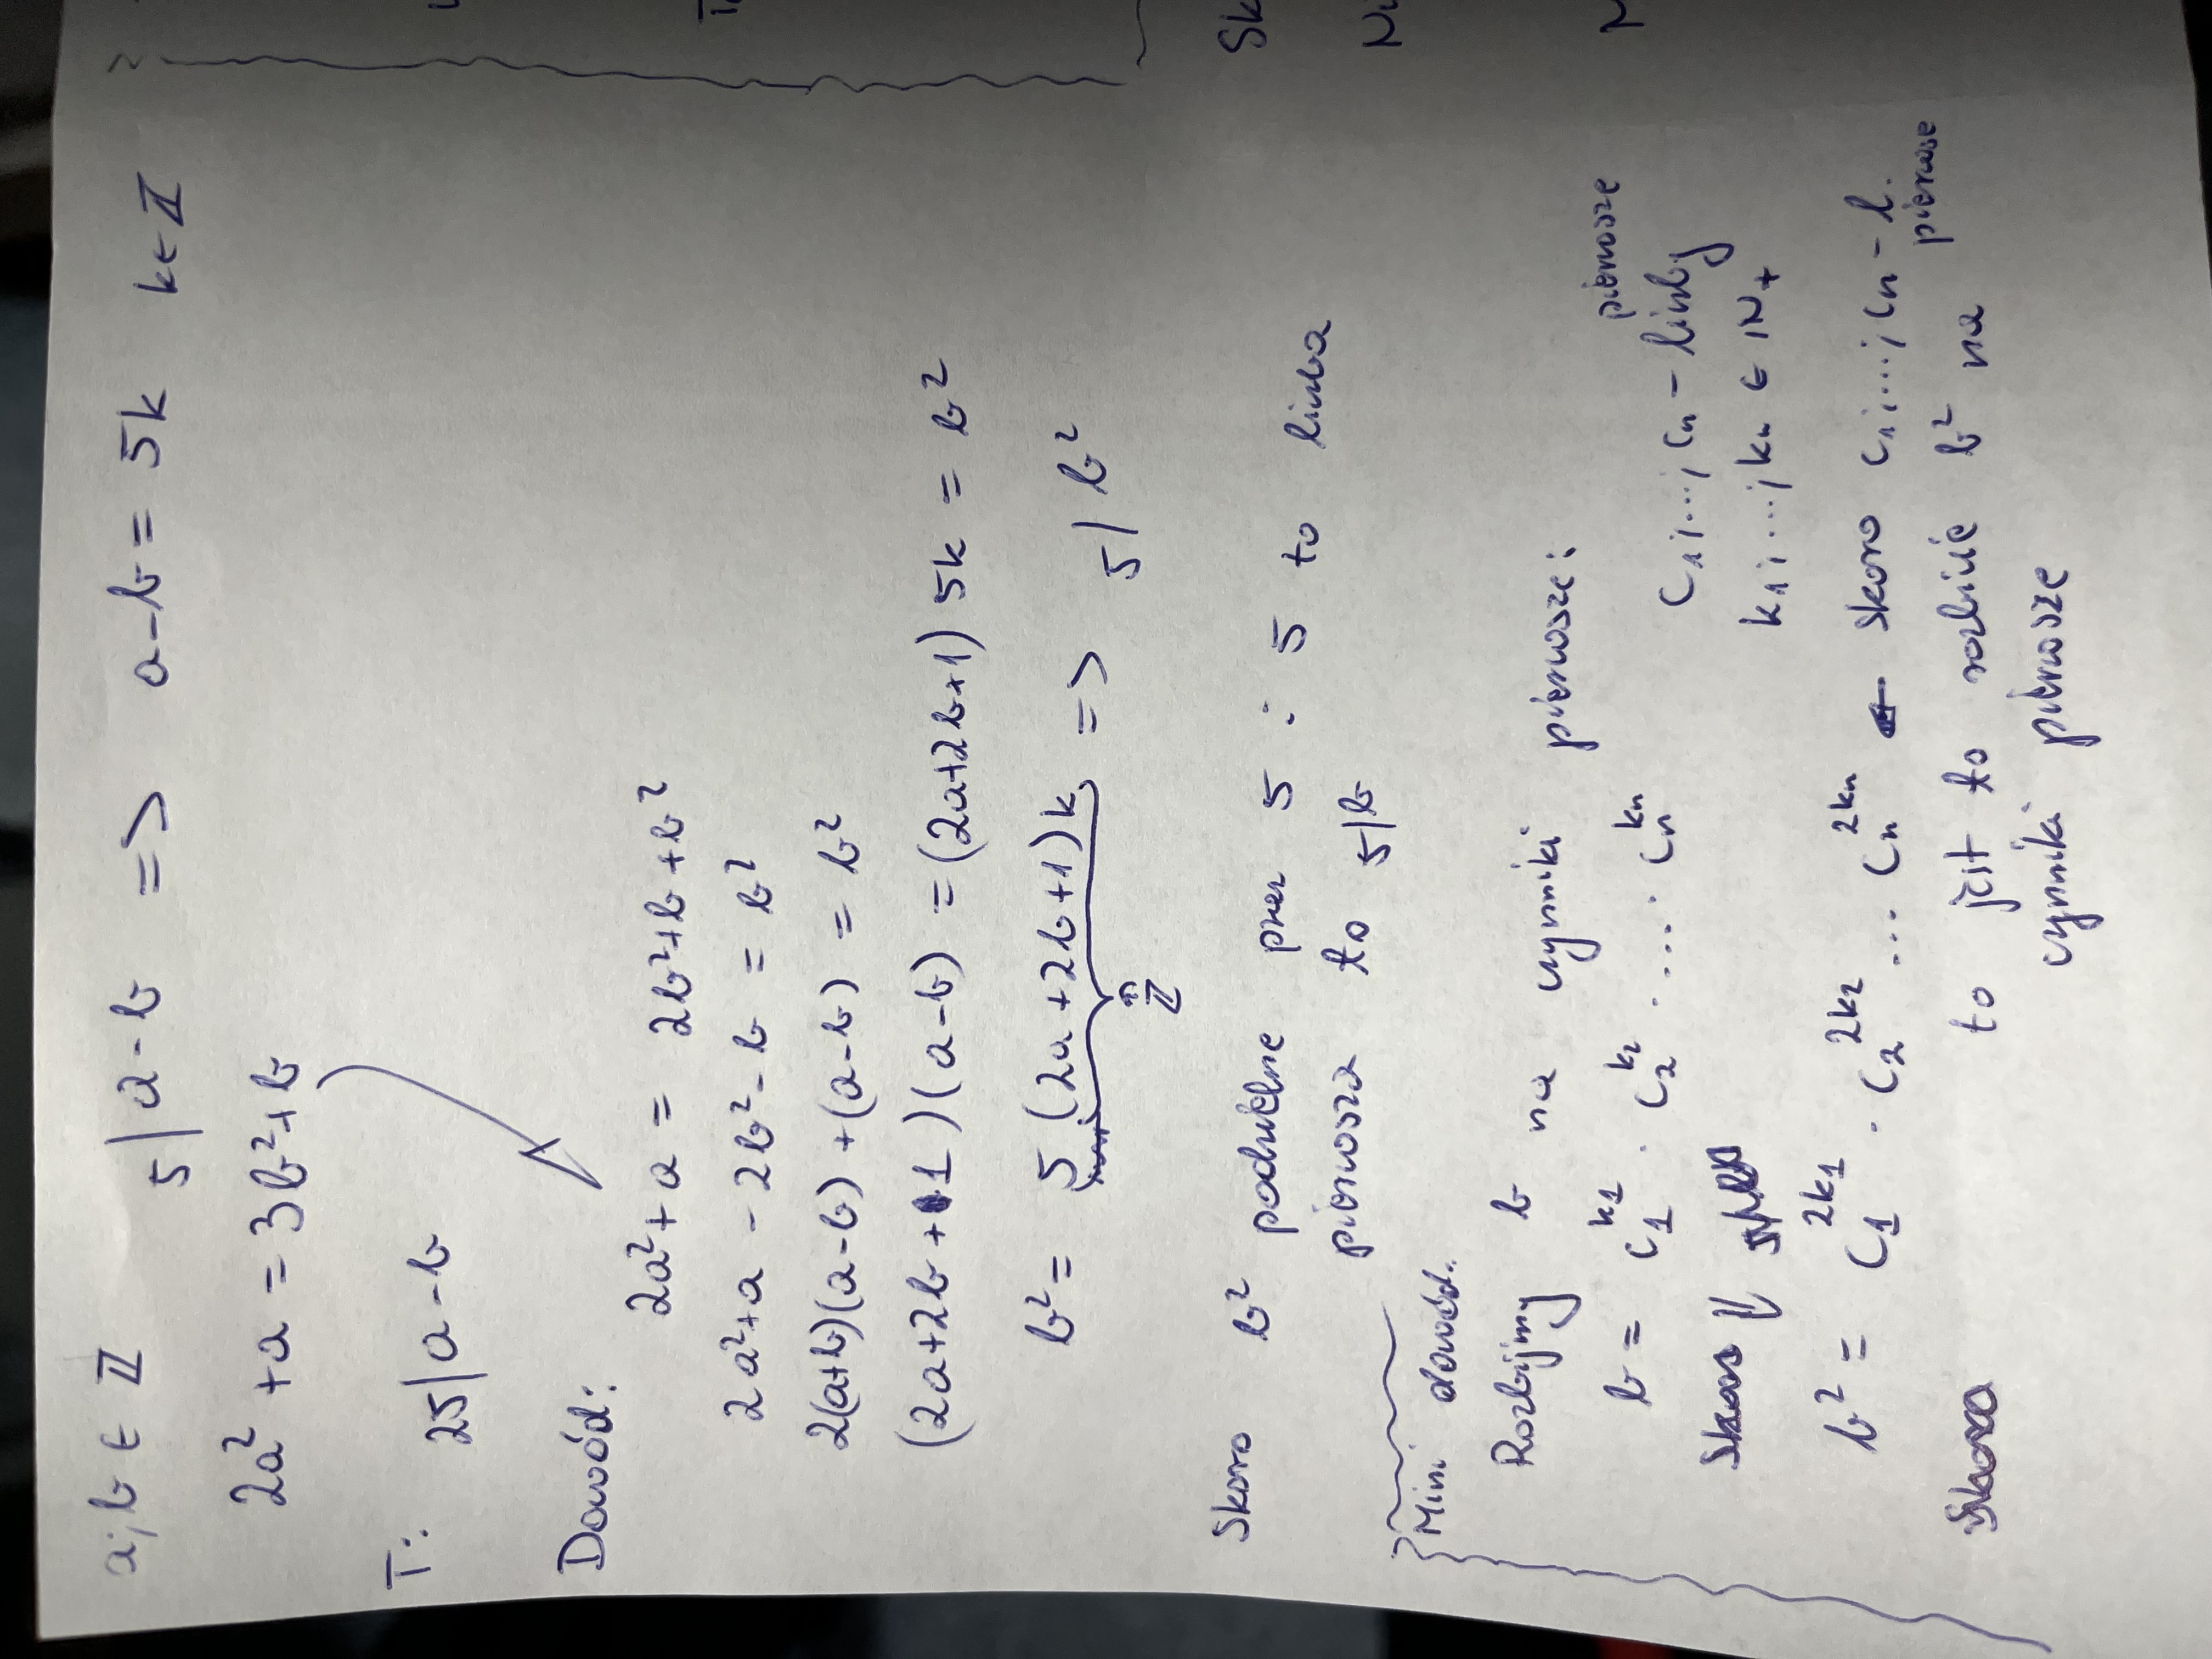 a; b ∈ ℤ 5 | a-b => a-b = 5k k∈ℤ
2a² + a = 3b² + b
T: 25 | a-b
Dowód:
2a² + a = 2b² + b + b²
2a² + a - 2b² - b = b²
2(a+b)(a-b) + (a-b) = b²
(2a+2b+1)(a-b) = (2a+2b+1) 5k = b²
b² = 5(2a+2b+1)k => 5 | b²
∈ ℤ
Skoro b² podzielne przez 5 i 5 to liczba
pierwsza to 5|b
Mini dowód:
Rozbijmy b na czynniki pierwsze:
b = c₁^k₁ · c₂^k₂ · .... · cₙ^kₙ c₁; ...; cₙ - liczby pierwsze
k₁; ...; kₙ ∈ ℕ₊
Skoro
b² = c₁^2k₁ · c₂^2k₂ ... cₙ^2kₙ ← skoro c₁; ....; cₙ - l. pierwsze
Skoro to jest to rozbicie b² na
czynniki pierwsze
Sk